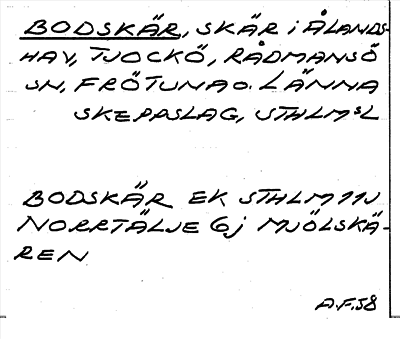 BODSKÄR, SKÄR i ÅLANDS-
HAV, TJOCKÖ, RÅDMANSÖ
SN, FRÖTUNA o. LÄNNA
SKEPPSLAG, STHLMSL
BODSKÄR EK STHLM 11J
NORRTÄLJE 6j MJÖLSKÄ-
REN
A.F.58